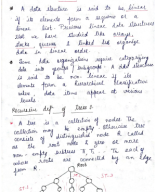 * A data structure is said to be linear
if its elements form a sequence or a
linear list. Previous linear data structures
that we have studied like arrays,
stacks, queues & linked list organize
data in linear order.
* Some data organization require categorizing
data into groups / subgroups. A data structure
is said to be non-linear if its
elements form a hierarchical classification
where data items appear at various
levels.
Recursive defn of Trees :-
* A tree is a collection of nodes. The
collection may be empty otherwise tree
consists of distinguished node R called
as the root node & zero or more
non-empty subtrees T1, ... each of
whose roots are connected by an edge
from R.
Root
ST-1